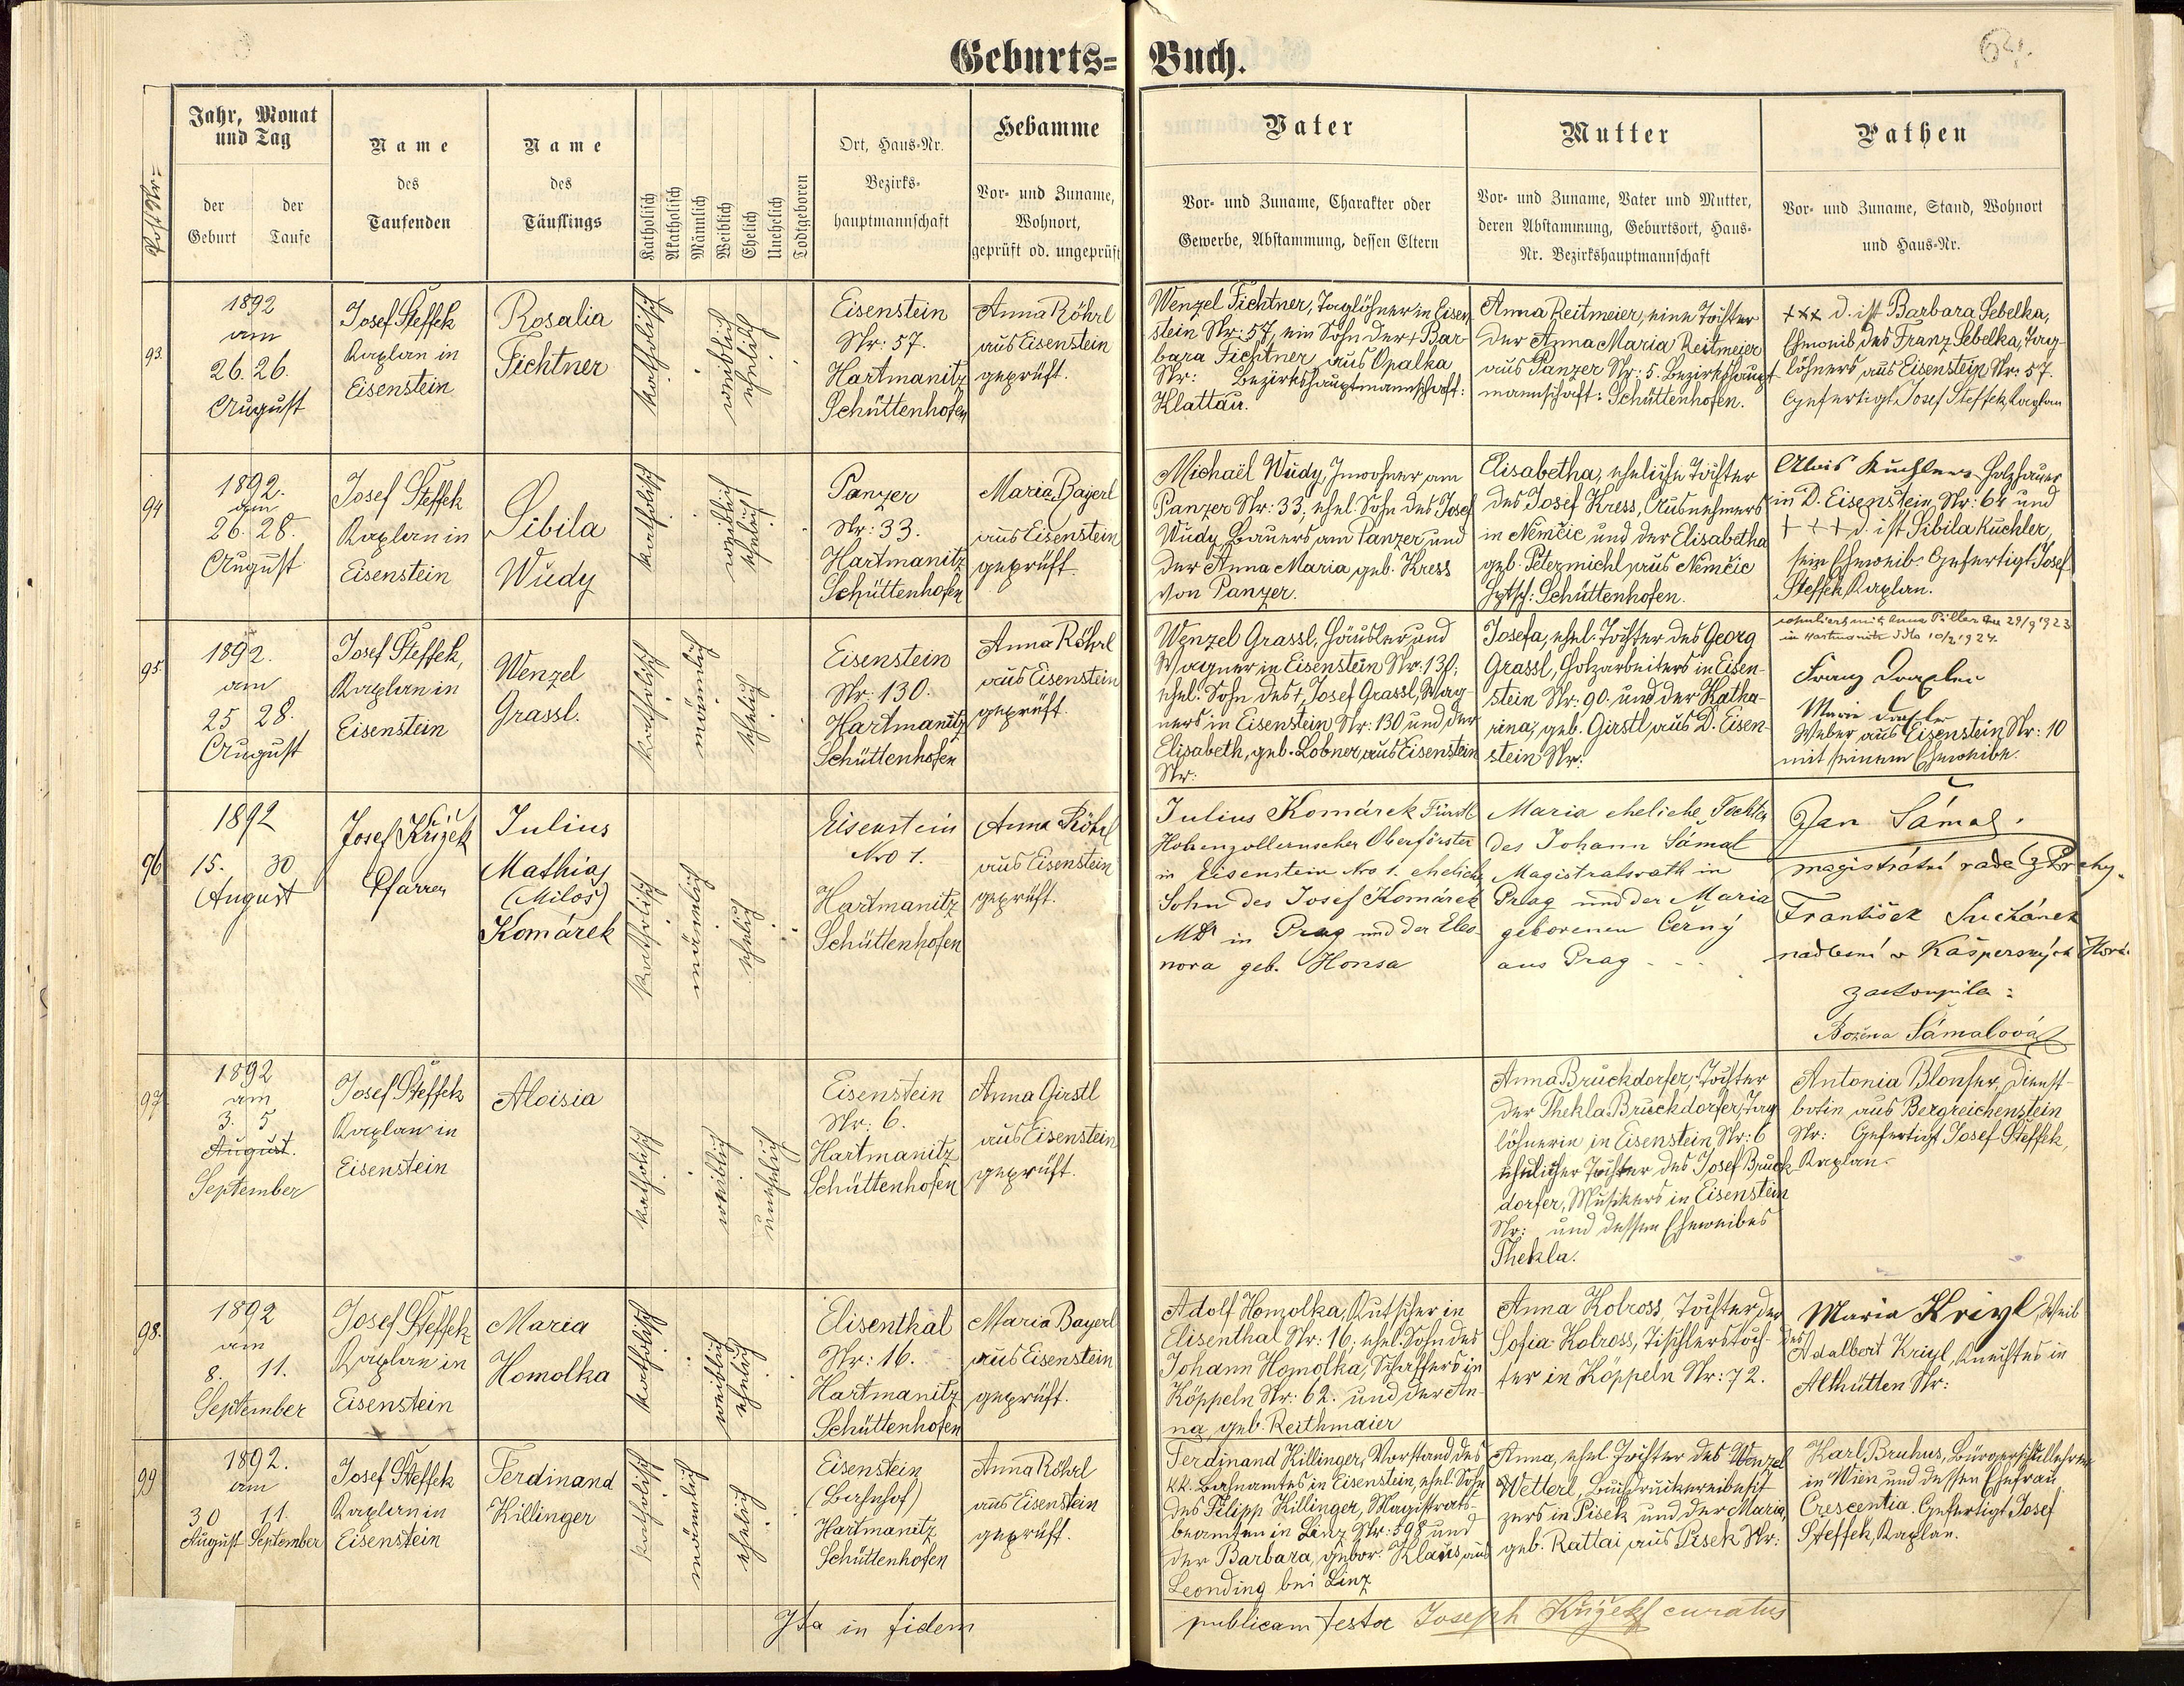 Geburts= Buch.
Jahr, Monat
und Tag
der
Geburt
der
Taufe
Name
des
Taufenden
Name
des
Täuflings
Katholisch
Akatholisch
Männlich
Weiblich
Ehelich
Unehelich
Todtgeboren
Ort, Haus-Nr.
Bezirks-
hauptmannschaft
Hebamme
Vor- und Zuname,
Wohnort,
geprüft od. ungeprüft
Vater
Vor- und Zuname, Charakter oder
Gewerbe, Abstammung, dessen Eltern
Mutter
Vor- und Zuname, Vater und Mutter,
deren Abstammung, Geburtsort, Haus-
Nr. Bezirkshauptmannschaft
Pathen
Vor- und Zuname, Stand, Wohnort
und Haus-Nr.
93.
1892
am
26. 26.
August
Josef Steffek
Kaplan in
Eisenstein
Rosalia
Fichtner
katholisch
weiblich
ehelich
Eisenstein
Nr: 57.
Hartmanitz
Schüttenhofen
Anna Röhrl
aus Eisenstein
geprüft.
Wenzel Fichtner, Taglöhner in Eisen-
stein Nr: 57, ein Sohn der + Bar-
bara Fichtner aus Opalka
Nr: Bezirkshauptmannschaft:
Klattau.
Anna Reitmeier, eine Tochter
der Anna Maria Reitmeier
aus Panzer Nr: 5. Bezirkshaupt-
mannschaft: Schüttenhofen.
+++ d. ist Barbara Sebelka,
Eheweib des Franz Sebelka, Tag-
löhners aus Eisenstein Nr: 57.
Gefertigt Josef Steffek Kaplan
94
1892.
am
26. 28.
August
Josef Steffek
Kaplan in
Eisenstein
Sibila
Wudy
katholisch
weiblich
ehelich
Panzer
Nr: 33.
Hartmanitz
Schüttenhofen
Maria Bayerl
aus Eisenstein
geprüft.
Michaël Wudy, Inwohner am
Panzer Nr: 33, ehel. Sohn des Josef
Wudy Bauers am Panzer und
der Anna Maria geb. Kress
von Panzer.
Elisabetha, eheliche Tochter
des Josef Kress, Ausnehmers
in Němčic und der Elisabetha
geb. Petermichl aus Němčic
Hptsch: Schüttenhofen.
Alois Kuchler Holzhauer
in D. Eisenstein Nr: 64 und
+++ d. ist Sibila Kuchler,
sein Eheweib Gefertigt Josef
Steffek, Kaplan.
95
1892.
am
25 28.
August
Josef Steffek,
Kaplan in
Eisenstein
Wenzel
Grassl.
katholisch
männlich
ehelich
Eisenstein
Nr: 130.
Hartmanitz
Schüttenhofen
Anna Röhrl
aus Eisenstein
geprüft.
Wenzel Grassl, Häusler und
Wagner in Eisenstein Nr: 130;
ehel. Sohn des +, Josef Grassl, Wag-
ners in Eisenstein Nr: 130 und der
Elisabeth, geb. Lobner aus Eisenstein
Nr:
Josefa, ehel. Tochter des Georg
Grassl, Holzarbeiters in Eisen-
stein Nr: 90. und der Katha-
rina, geb. Girstl aus D. Eisen-
stein Nr:
29/9 1923
in Hartmanitz
Franz
Marie
Weber aus Eisenstein Nr: 10
mit seinem Eheweibe.
96
1892
15. 30
August
Josef Křížek
Pfarrer
Julius
Mathias
(Miloš)
Komárek
katholisch
männlich
ehelich
Eisenstein
Nro 1.
Hartmanitz
Schüttenhofen
Anna Röhrl
aus Eisenstein
geprüft.
Julius Komárek Fürstl
Hohenzollernscher Oberförster
in Eisenstein Nro 1. ehelicher
Sohn des Josef Komárek
MDr in Prag und der Eleo-
nora geb. Honsa
Maria eheliche Tochter
des Johann Šámal
Magistratsrath in
Prag und der Maria
geborenen Černý
aus Prag
Jan Šámal.
magistrátní rada z Prahy.
František Suchánek
nadlesní v Kašperských Horá.
zastoupila:
Božena Šámalová
97
1892
am
3. 5
August.
September
Josef Steffek
Kaplan in
Eisenstein
Aloisia
katholisch
weiblich
unehelich
Eisenstein
Nr: 6.
Hartmanitz
Schüttenhofen
Anna Girstl
aus Eisenstein
geprüft.
Anna Bruckdorfer, Tochter
der Thekla Bruckdorfer, Tag-
löhnerin in Eisenstein, Nr: 6
ehelicher Tochter des Josef Bruck-
dorfer, Musikers in Eisenstein
Nr: und dessen Eheweibes
Thekla.
Antonia Blonser, Dienst-
botin aus Bergreichenstein
Nr: Gefertigt Josef Steffek,
Kaplan.
98.
1892
am
8. 11.
September
Josef Steffek
Kaplan in
Eisenstein
Maria
Homolka
katholisch
weiblich
ehelich
Elisenthal
Nr: 16.
Hartmanitz
Schüttenhofen
Maria Bayerl
aus Eisenstein
geprüft.
Adolf Homolka, Kutscher in
Elisenthal Nr: 16, ehel. Sohn des
Johann Homolka, Schaffers in
Köppeln Nr: 62. und der An-
na, geb. Reithmaier
Anna Kolross, Tochter der
Sofia Kolross, Tischlerstoch-
ter in Köppeln Nr: 72.
Maria Krigl, Weib
des Adalbert Krigl, Knechtes in
Althütten Nr:
99
1892.
am
30 11.
August September
Josef Steffek
Kaplan in
Eisenstein
Ferdinand
Killinger
katholisch
männlich
ehelich
Eisenstein
(Bahnhof)
Hartmanitz
Schüttenhofen
Anna Röhrl
aus Eisenstein
geprüft.
Ferdinand Killinger, Vorstand des
kk. Bahnamtes in Eisenstein, ehel. Sohn
des Filipp Killinger, Magistrats-
beamten in Linz Nr: 598 und
der Barbara, gebor: Klaus, aus
Leonding bei Linz
Anna, ehel Tochter des Wenzel
Wetterl, Buchdruckereibesit-
zers in Pisek und der Maria,
geb. Rattai, aus Pisek Nr:
Karl Bruhus, Bürgerschullehrer
in Wien und dessen Ehefrau
Crescentia. Gefertigt Josef
Steffek, Kaplan.
Ita in fidem publicam testor Joseph Křížek curatus